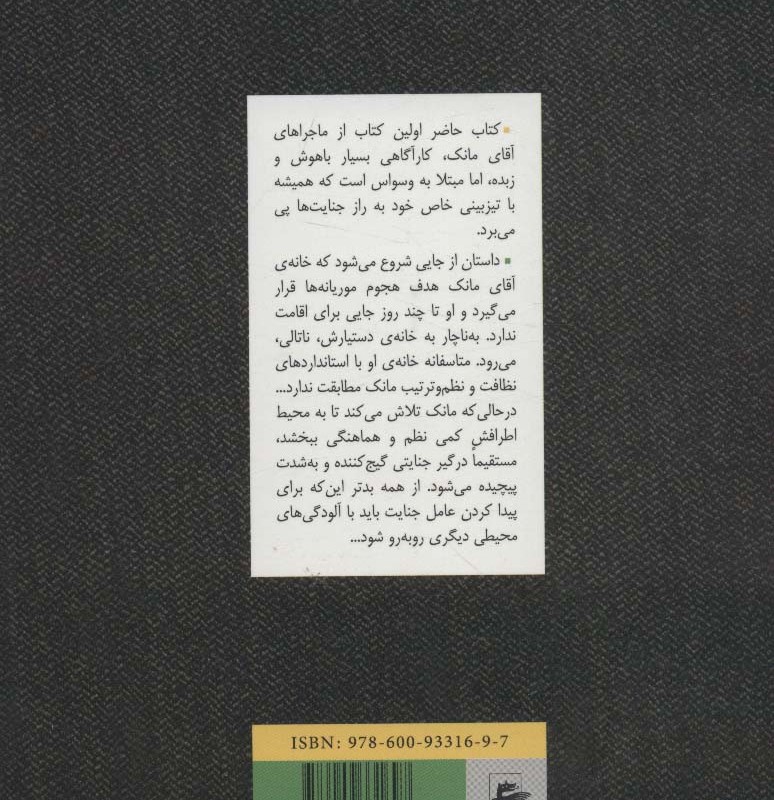 ▪ کتاب حاضر اولین کتاب از ماجراهای
آقای مانک، کارآگاهی بسیار باهوش و
زبده، اما مبتلا به وسواس است که همیشه
با تیزبینی خاص خود به راز جنایت‌ها پی
می‌برد.
▪ داستان از جایی شروع می‌شود که خانه‌ی
آقای مانک هدف هجوم موریانه‌ها قرار
می‌گیرد و او تا چند روز جایی برای اقامت
ندارد. به‌ناچار به خانه‌ی دستیارش، ناتالی،
می‌رود. متاسفانه خانه‌ی او با استانداردهای
نظافت و نظم‌وترتیب مانک مطابقت ندارد...
درحالی‌که مانک تلاش می‌کند تا به محیط
اطرافش کمی نظم و هماهنگی ببخشد،
مستقیماً درگیر جنایتی گیج‌کننده و به‌شدت
پیچیده می‌شود. از همه بدتر این‌که برای
پیدا کردن عامل جنایت باید با آلودگی‌های
محیطی دیگری روبه‌رو شود...
ISBN: 978-600-93316-9-7